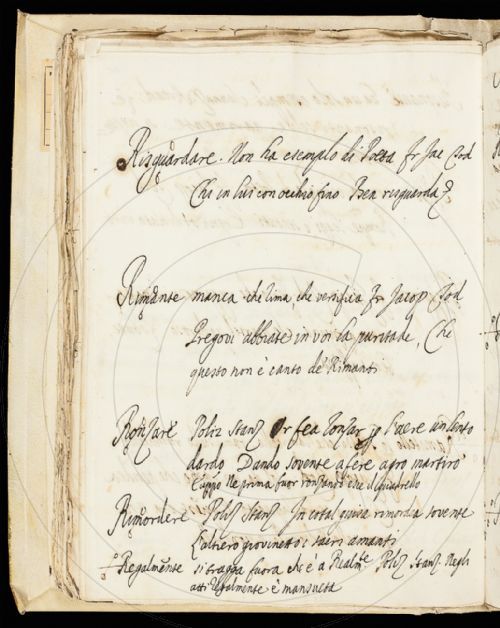 Rizguardare. Non ha esemplo di Poeta fr Jac Tod
Chi in lui con occhio fino Ben risguarda
Rimante manca che lima, che versifica fr Jacop Tod
Pregovi abbiate in voi la puritade, Che
questo non è canto de Rimanti
Ronzare Poliz Stanz Or fea ronzar p l'aere un lento
dardo Dando sovente a fere agro martiro
ne prima fuor ronzando che il quadrello
Rimordere Poliz Stanz In cotal guisa rimordea sovente
L'altiero giovinetto i sacri amanti
Regalmente si tragga fuora che è a Realmte Poliz Stanz Negli
atti regalmente è mansueta